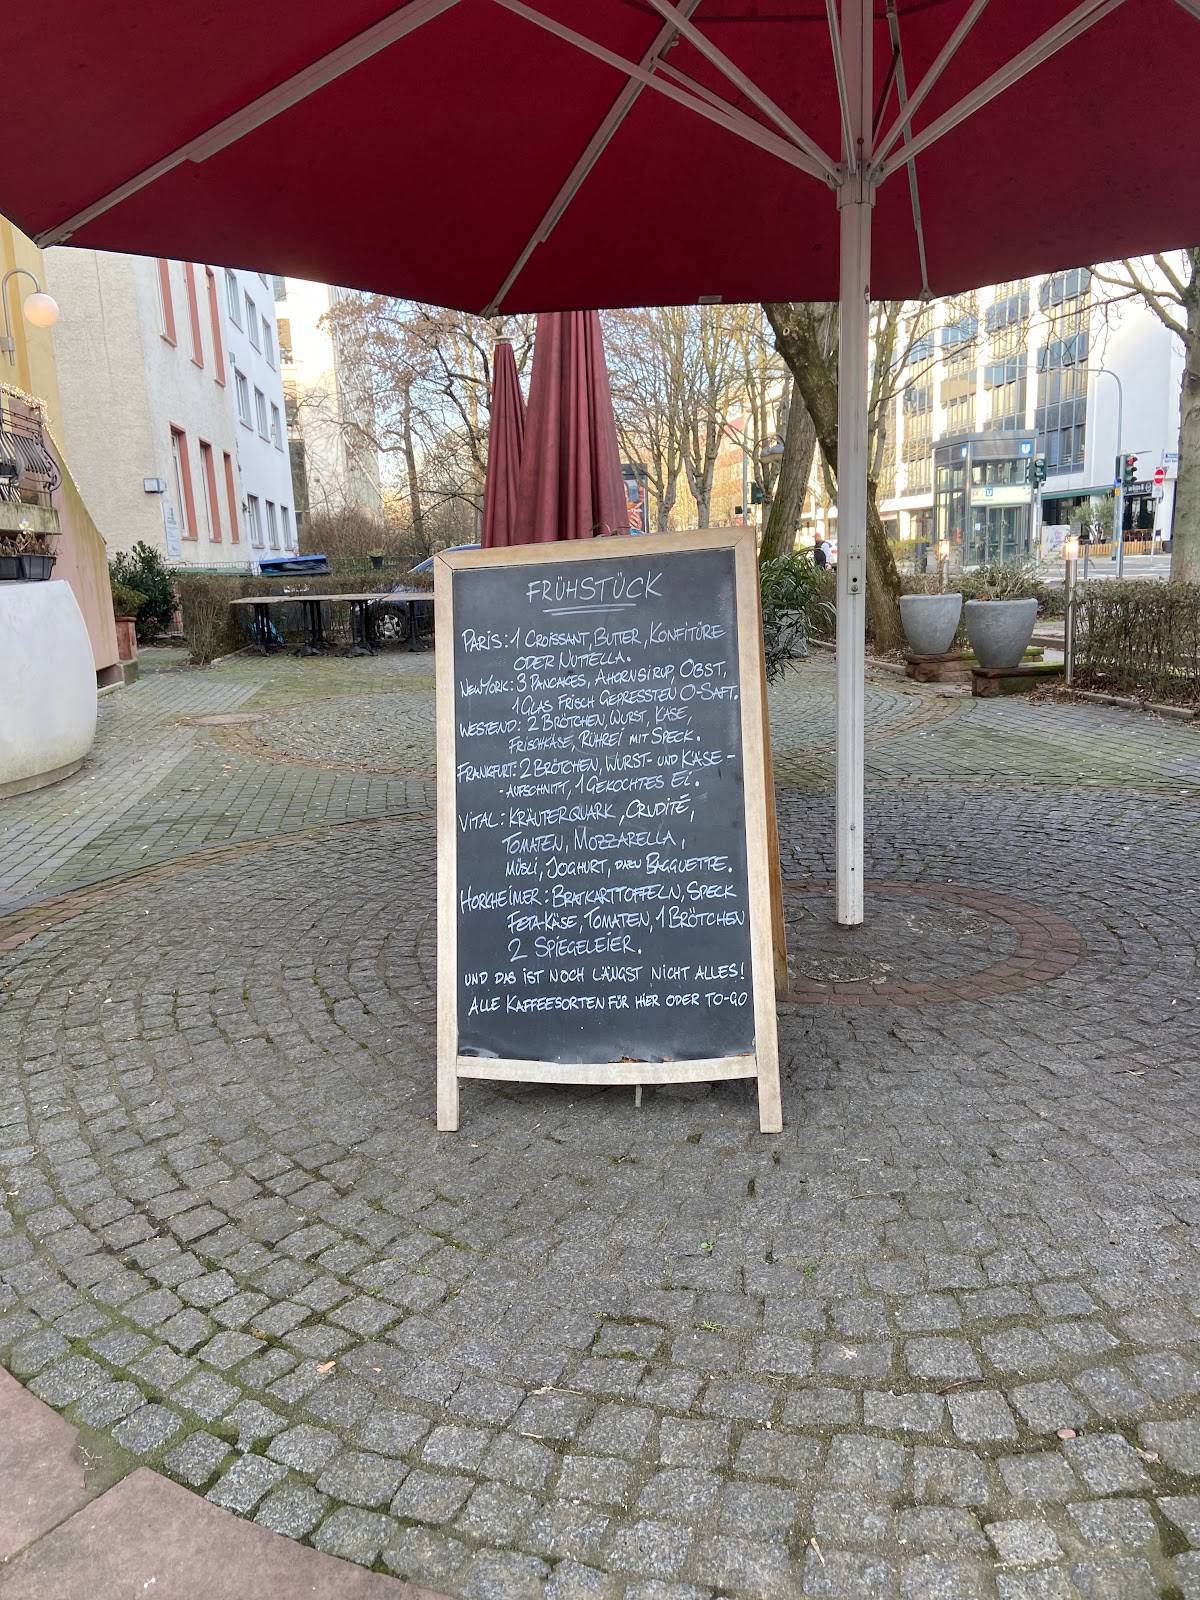 FRÜHSTÜCK
PARIS: 1 CROISSANT, BUTTER, KONFITÜRE
ODER NUTTELLA.
NEWYORK: 3 PANCAKES, AHORNSIRUP, OBST,
1 GLAS FRISCH GEPRESSTEN O-SAFT.
WESTEND: 2 BRÖTCHEN, WURST, KÄSE,
FRISCHKÄSE, RÜHREI MIT SPECK.
FRANKFURT: 2 BRÖTCHEN, WURST- UND KÄSE-
-AUFSCHNITT, 1 GEKOCHTES EI.
VITAL: KRÄUTERQUARK, CRUDITÉ,
TOMATEN, MOZZARELLA,
MÜSLI, JOGHURT, DAZU BAGGUETTE.
HORKHEIMER: BRATKARTTOFFELN, SPECK
FETA-KÄSE, TOMATEN, 1 BRÖTCHEN
2 SPIEGELEIER.
UND DAS IST NOCH LÄNGST NICHT ALLES!
ALLE KAFFEESORTEN FÜR HIER ODER TO-GO
U
U